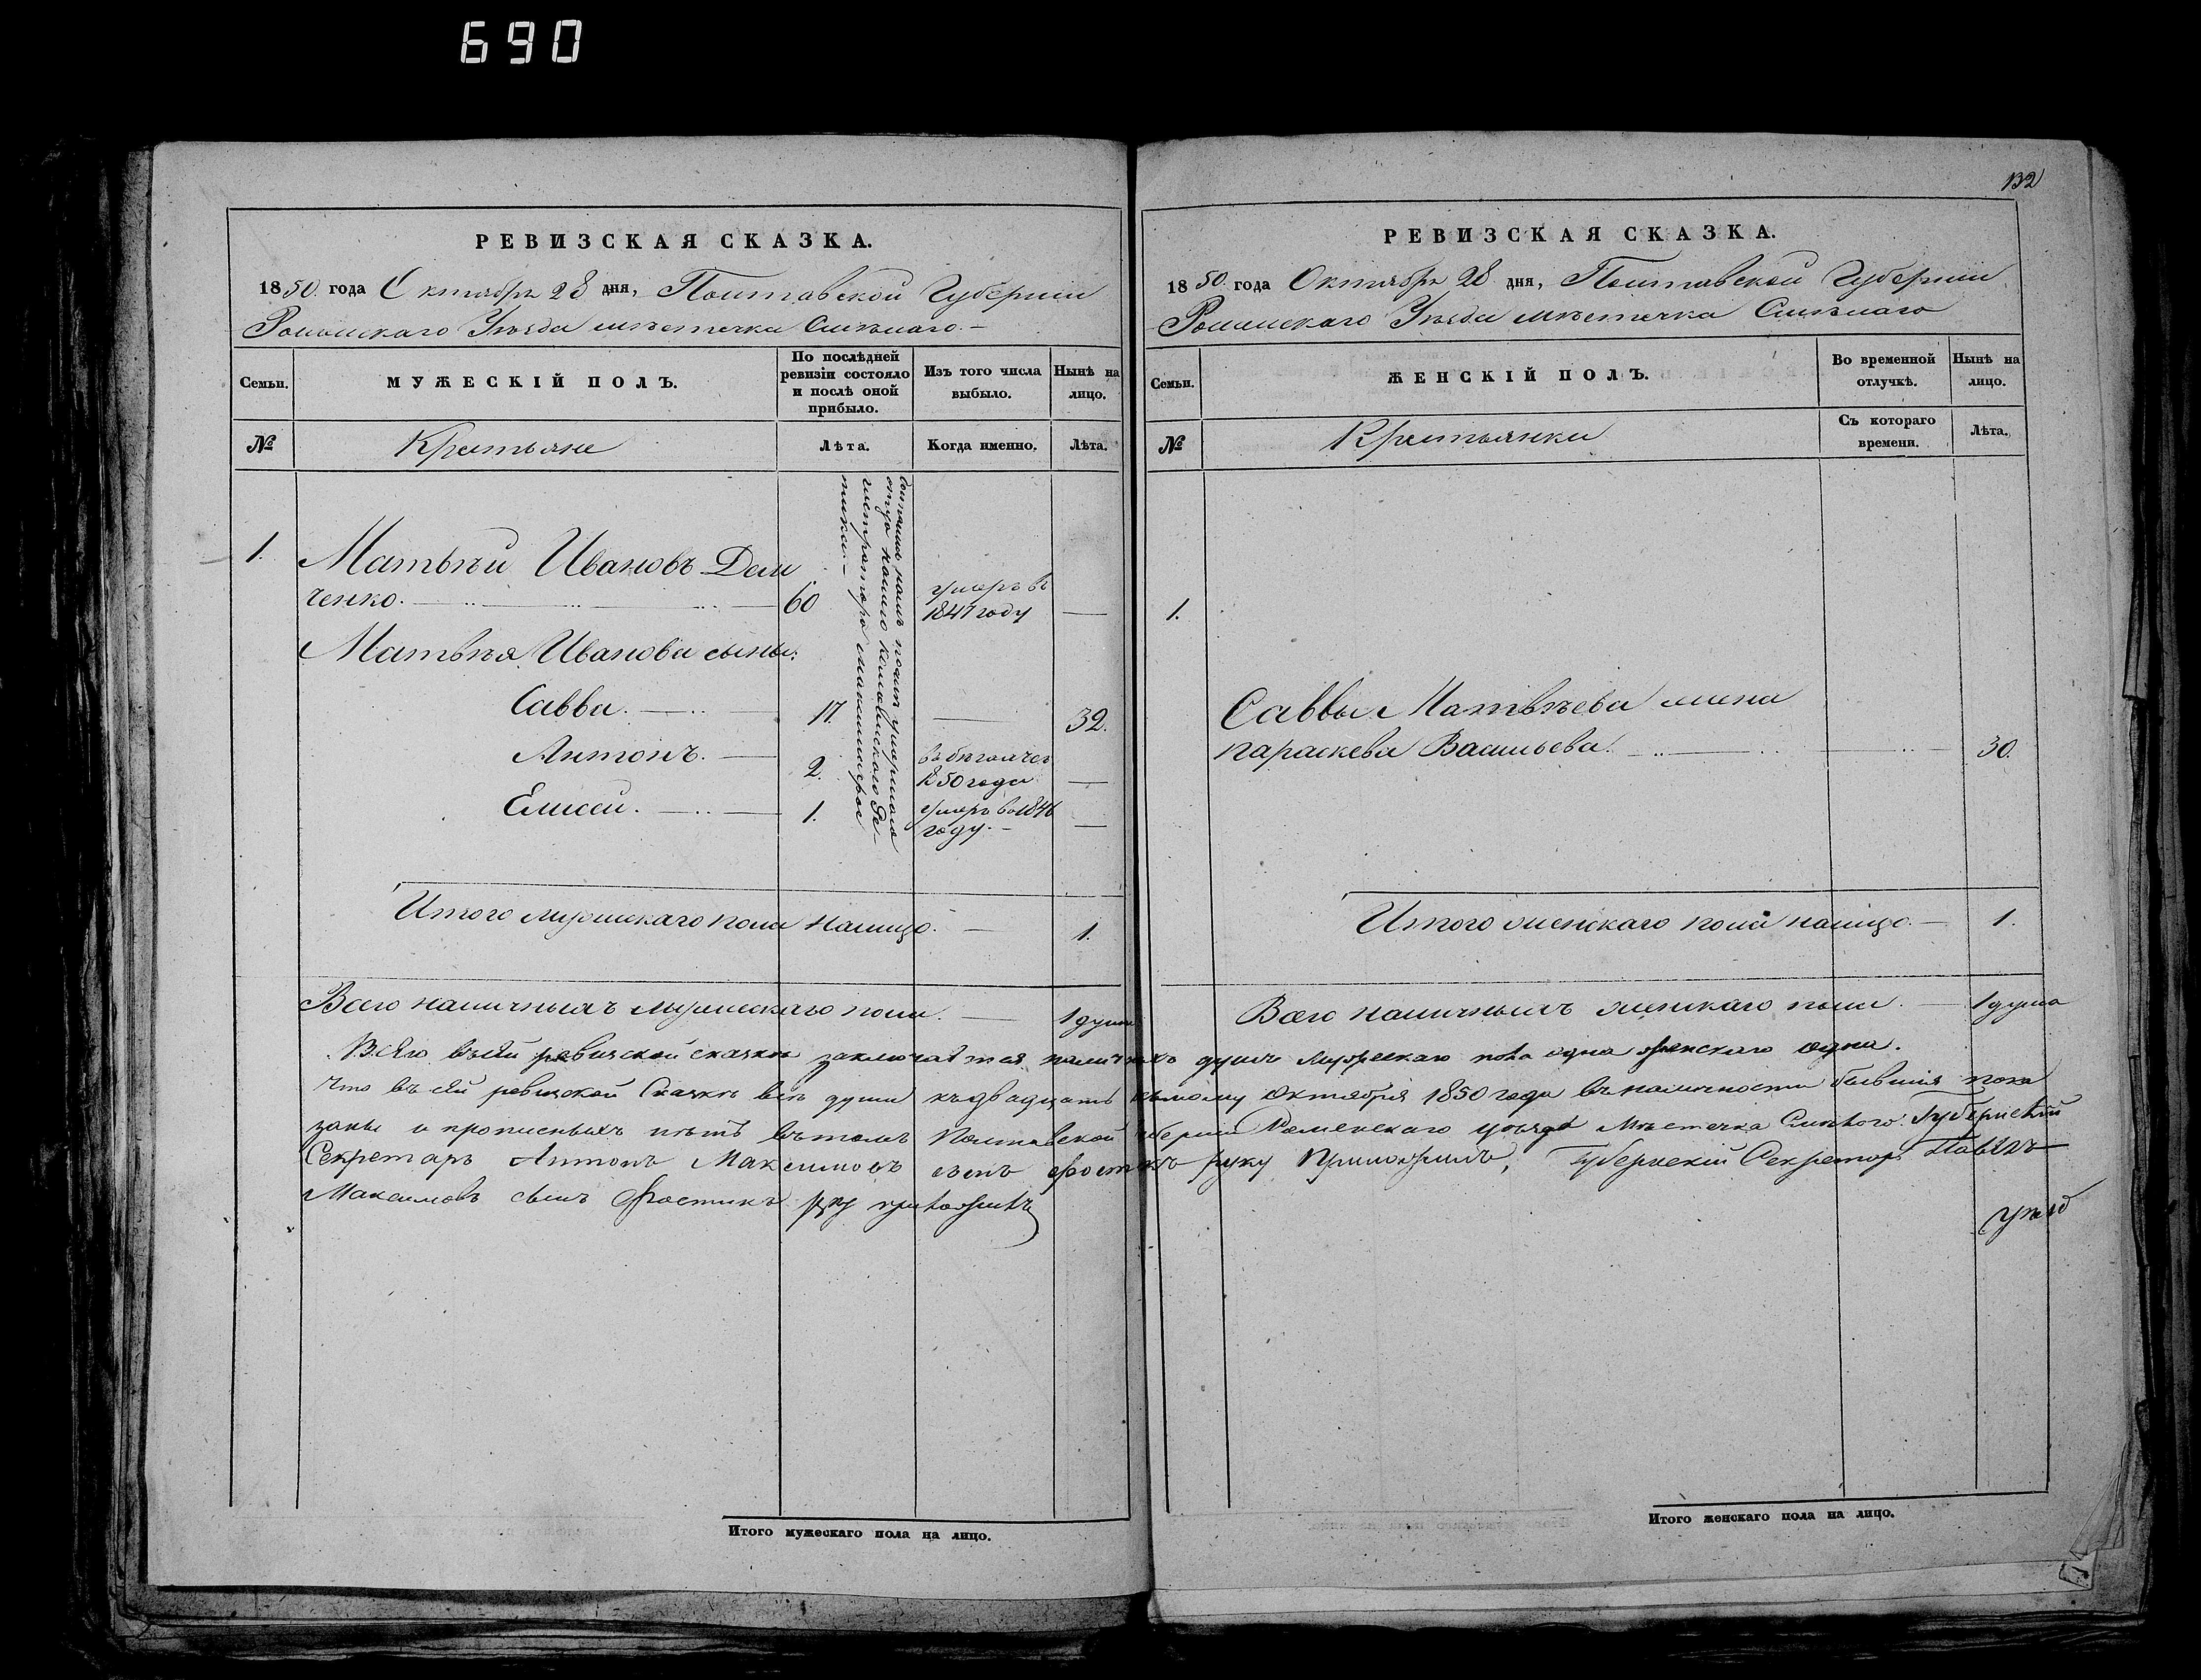 690
132
РЕВИЗСКАЯ СКАЗКА.
1850 года Октября 28 дня, Полтавской Губернии
Роменскаго Уезда местечка Смелаго.
Семьи.
МУЖЕСКІЙ ПОЛЪ.
По послѣдней ревизіи состояло и послѣ оной прибыло.
Изъ того числа выбыло.
Нынѣ на лицо.
№
Крестьяне
Лѣта.
Когда именно.
Лѣта.
1.
Матвѣй Ивановъ Дем
ченко. 60 умеръ въ
1847 году
Матвѣя Иванова сыны:
Савва. 17. 32.
Антонъ. 2.
1850 года
Елисей. 1. умеръ в 1846
году.
Итого мужескаго пола налицо. 1.
Всего наличныхъ мужескаго пола. 1 душа
РЕВИЗСКАЯ СКАЗКА.
1850 года Октября 28 дня, Полтавской Губерніи
Роменскаго Уѣзда мѣстечка Смѣлаго
Семьи.
ЖЕНСКІЙ ПОЛЪ.
Во временной отлучкѣ.
Нынѣ на лицо.
№
Крестьянки
Съ котораго времени.
Лѣта.
1.
Саввы Матвѣева жена
параскева Васильева. 30.
Итого женскаго пола налицо. 1.
Всего наличныхъ женскаго пола. 1 душа
Всѣго въ сѣй ревизской сказкѣ заключается наличныхъ душъ мужескаго пола одна женскаго одна.
Что въ сѣй ревизской Сказкѣ всѣ души къ двадцать осьмому Октября 1850 года въ наличности бывшія пока
заны и прописныхъ нѣтъ въ томъ Полтавской губерніи Роменскаго уѣзда Мѣстечка Смѣлого Губернскій
Секретарь Антонъ Максимовъ сынъ руку Приложилъ, Губернскій Секретарь Павелъ
Максимовъ сынъ руку приложилъ
Итого мужескаго пола на лицо.
Итого женскаго пола на лицо.